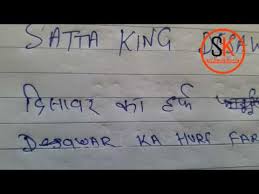 SATTA KING
SK
दिसावर का हर्फ
DESAWAR KA HURF FAR